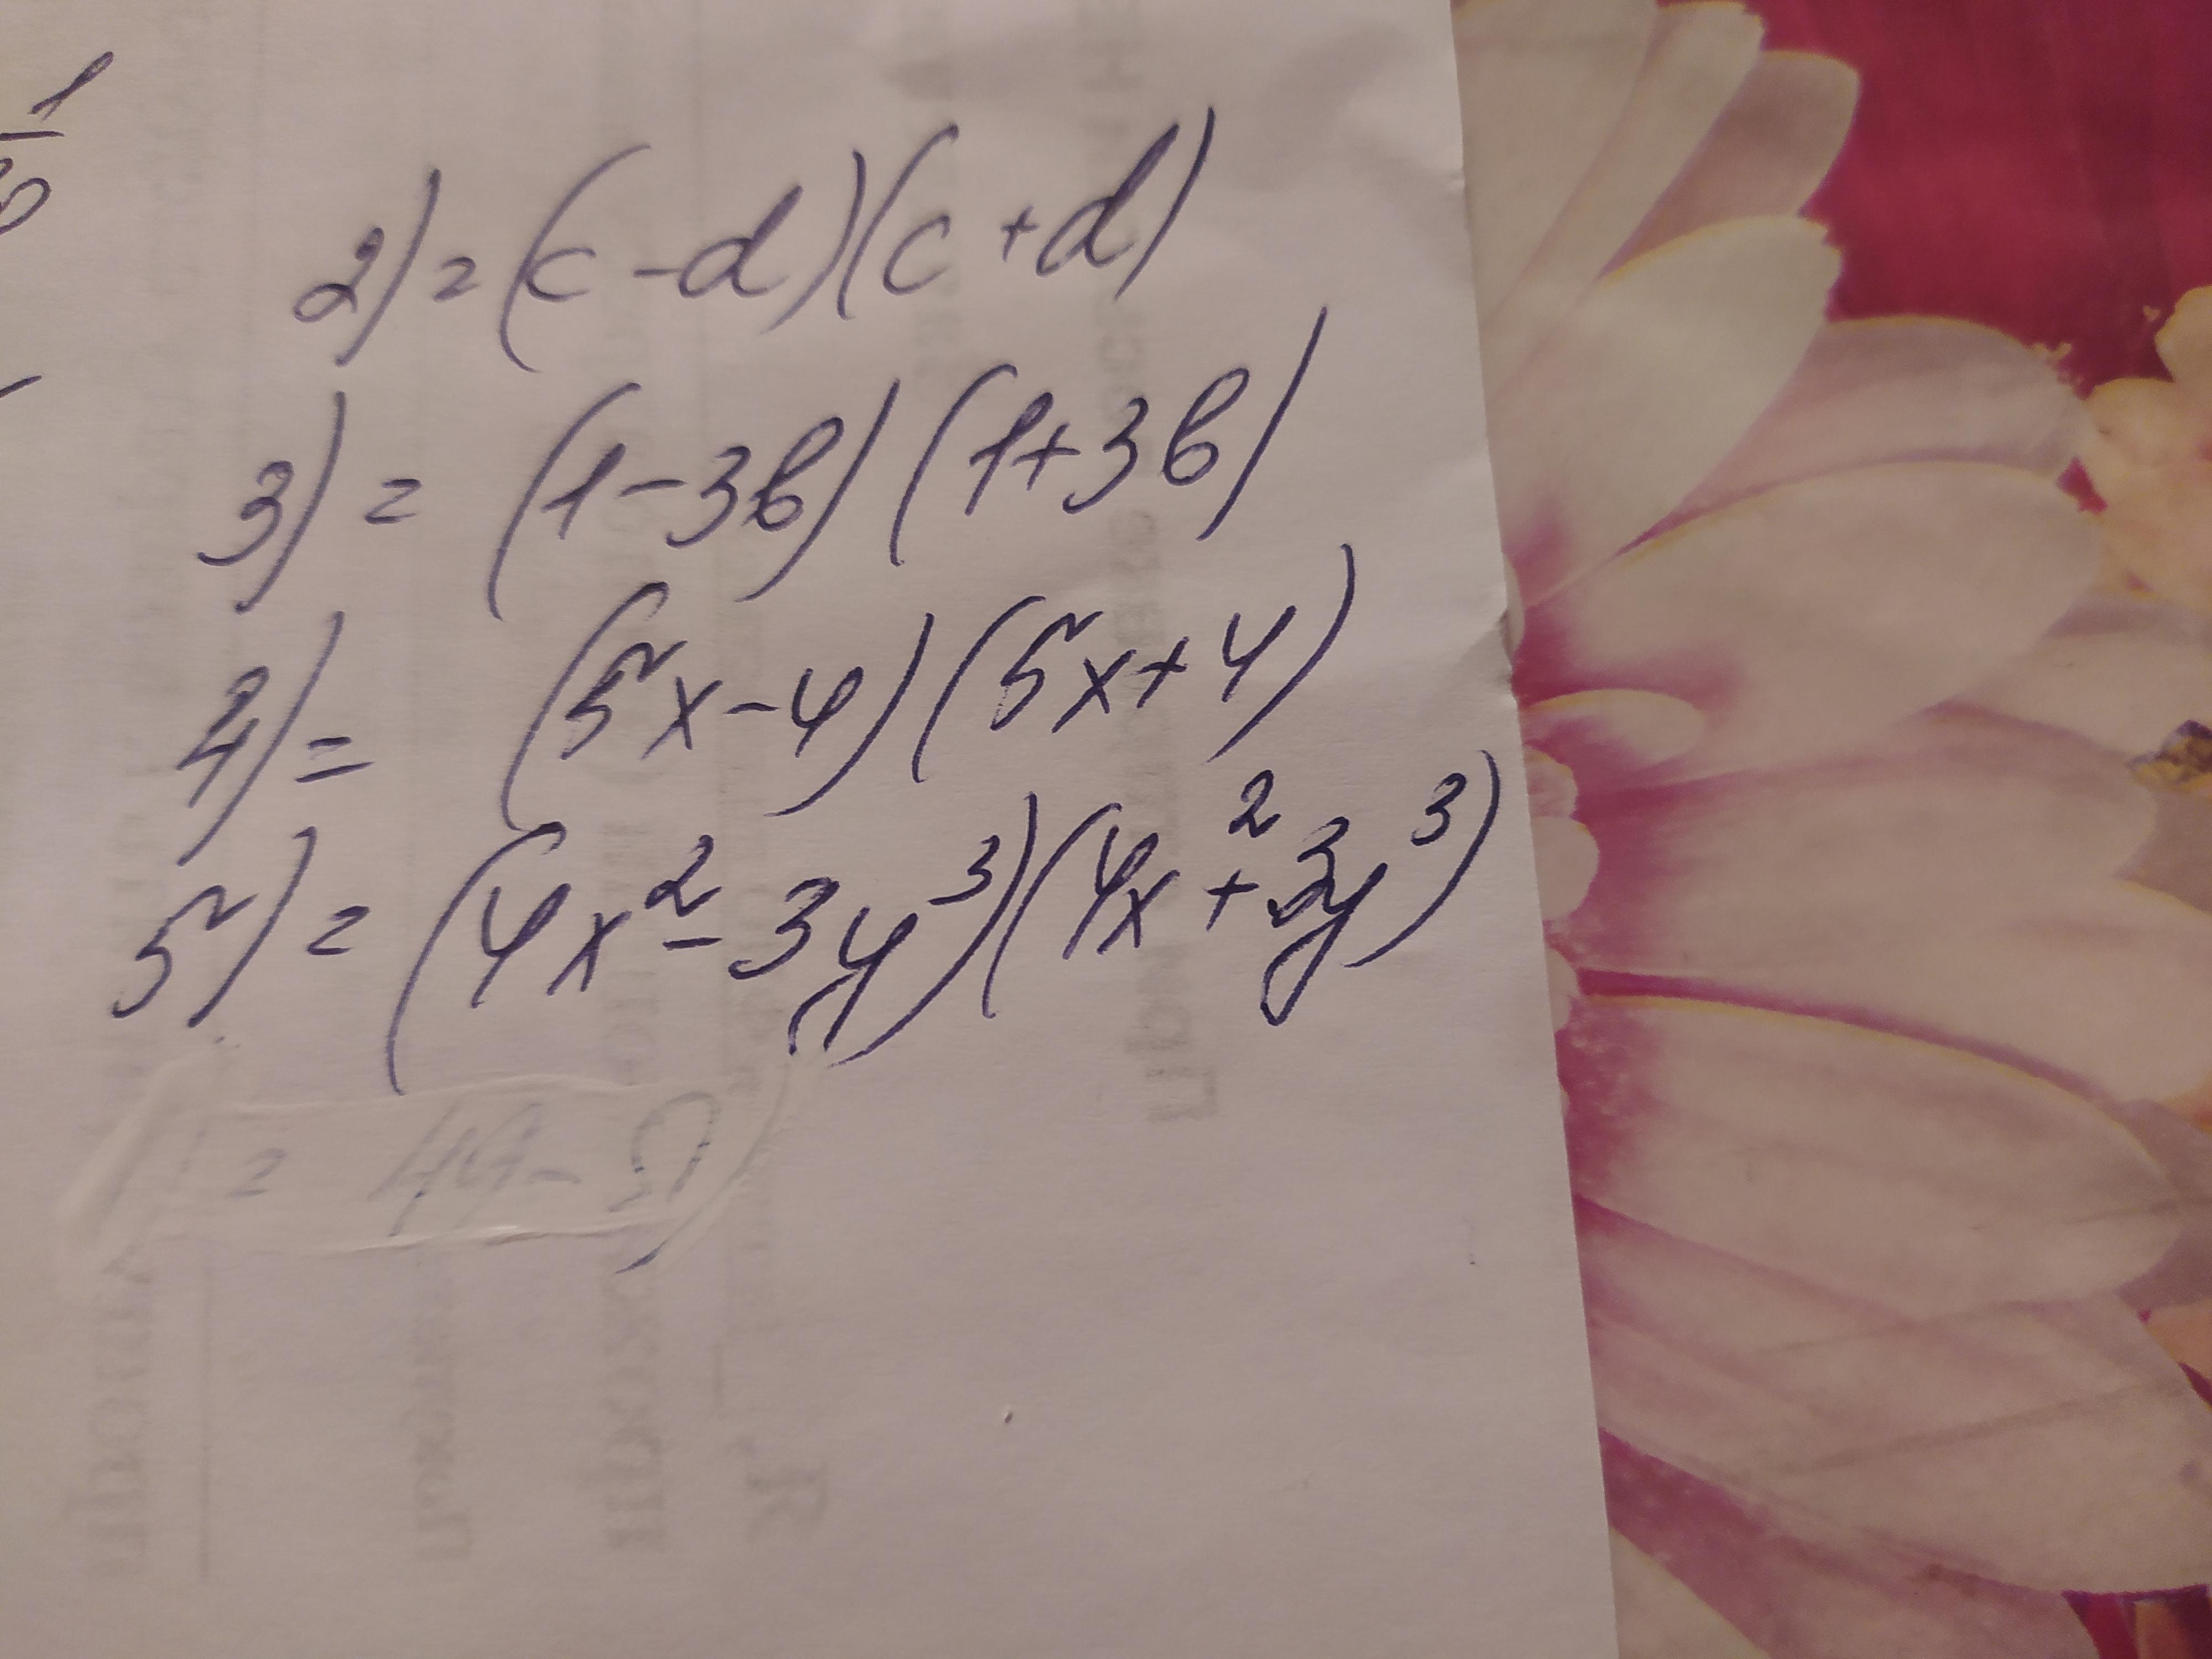 2) = (c - d)(c + d)
3) = (1 - 3b)(1 + 3b)
4) = (5x - 4)(5x + 4)
5) = (4x² - 3y³)(4x² + 3y³)